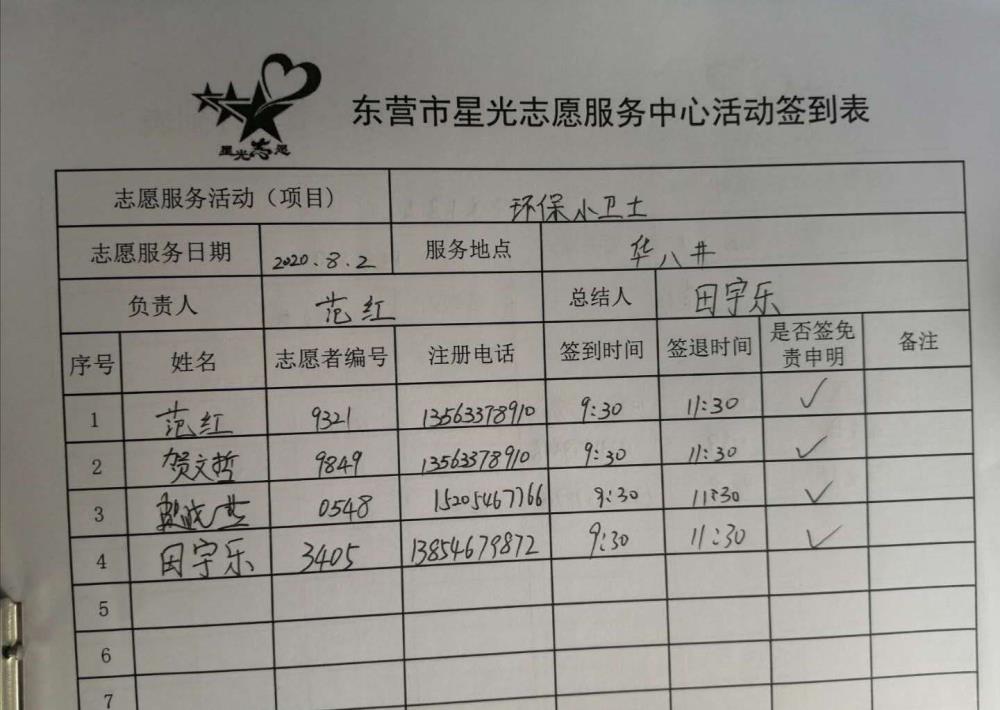 星光志愿
东营市星光志愿服务中心活动签到表
志愿服务活动（项目） 环保小卫士
志愿服务日期 2020.8.2 服务地点 华八井
负责人 范红 总结人 田宇乐
序号 姓名 志愿者编号 注册电话 签到时间 签退时间 是否签免责申明 备注
1 范红 9321 13563378910 9:30 11:30 ✓
2 贺文哲 9849 13563378910 9:30 11:30 ✓
3 0548 15205467766 9:30 11:30 ✓
4 田宇乐 3405 13854679872 9:30 11:30 ✓
5
6
7